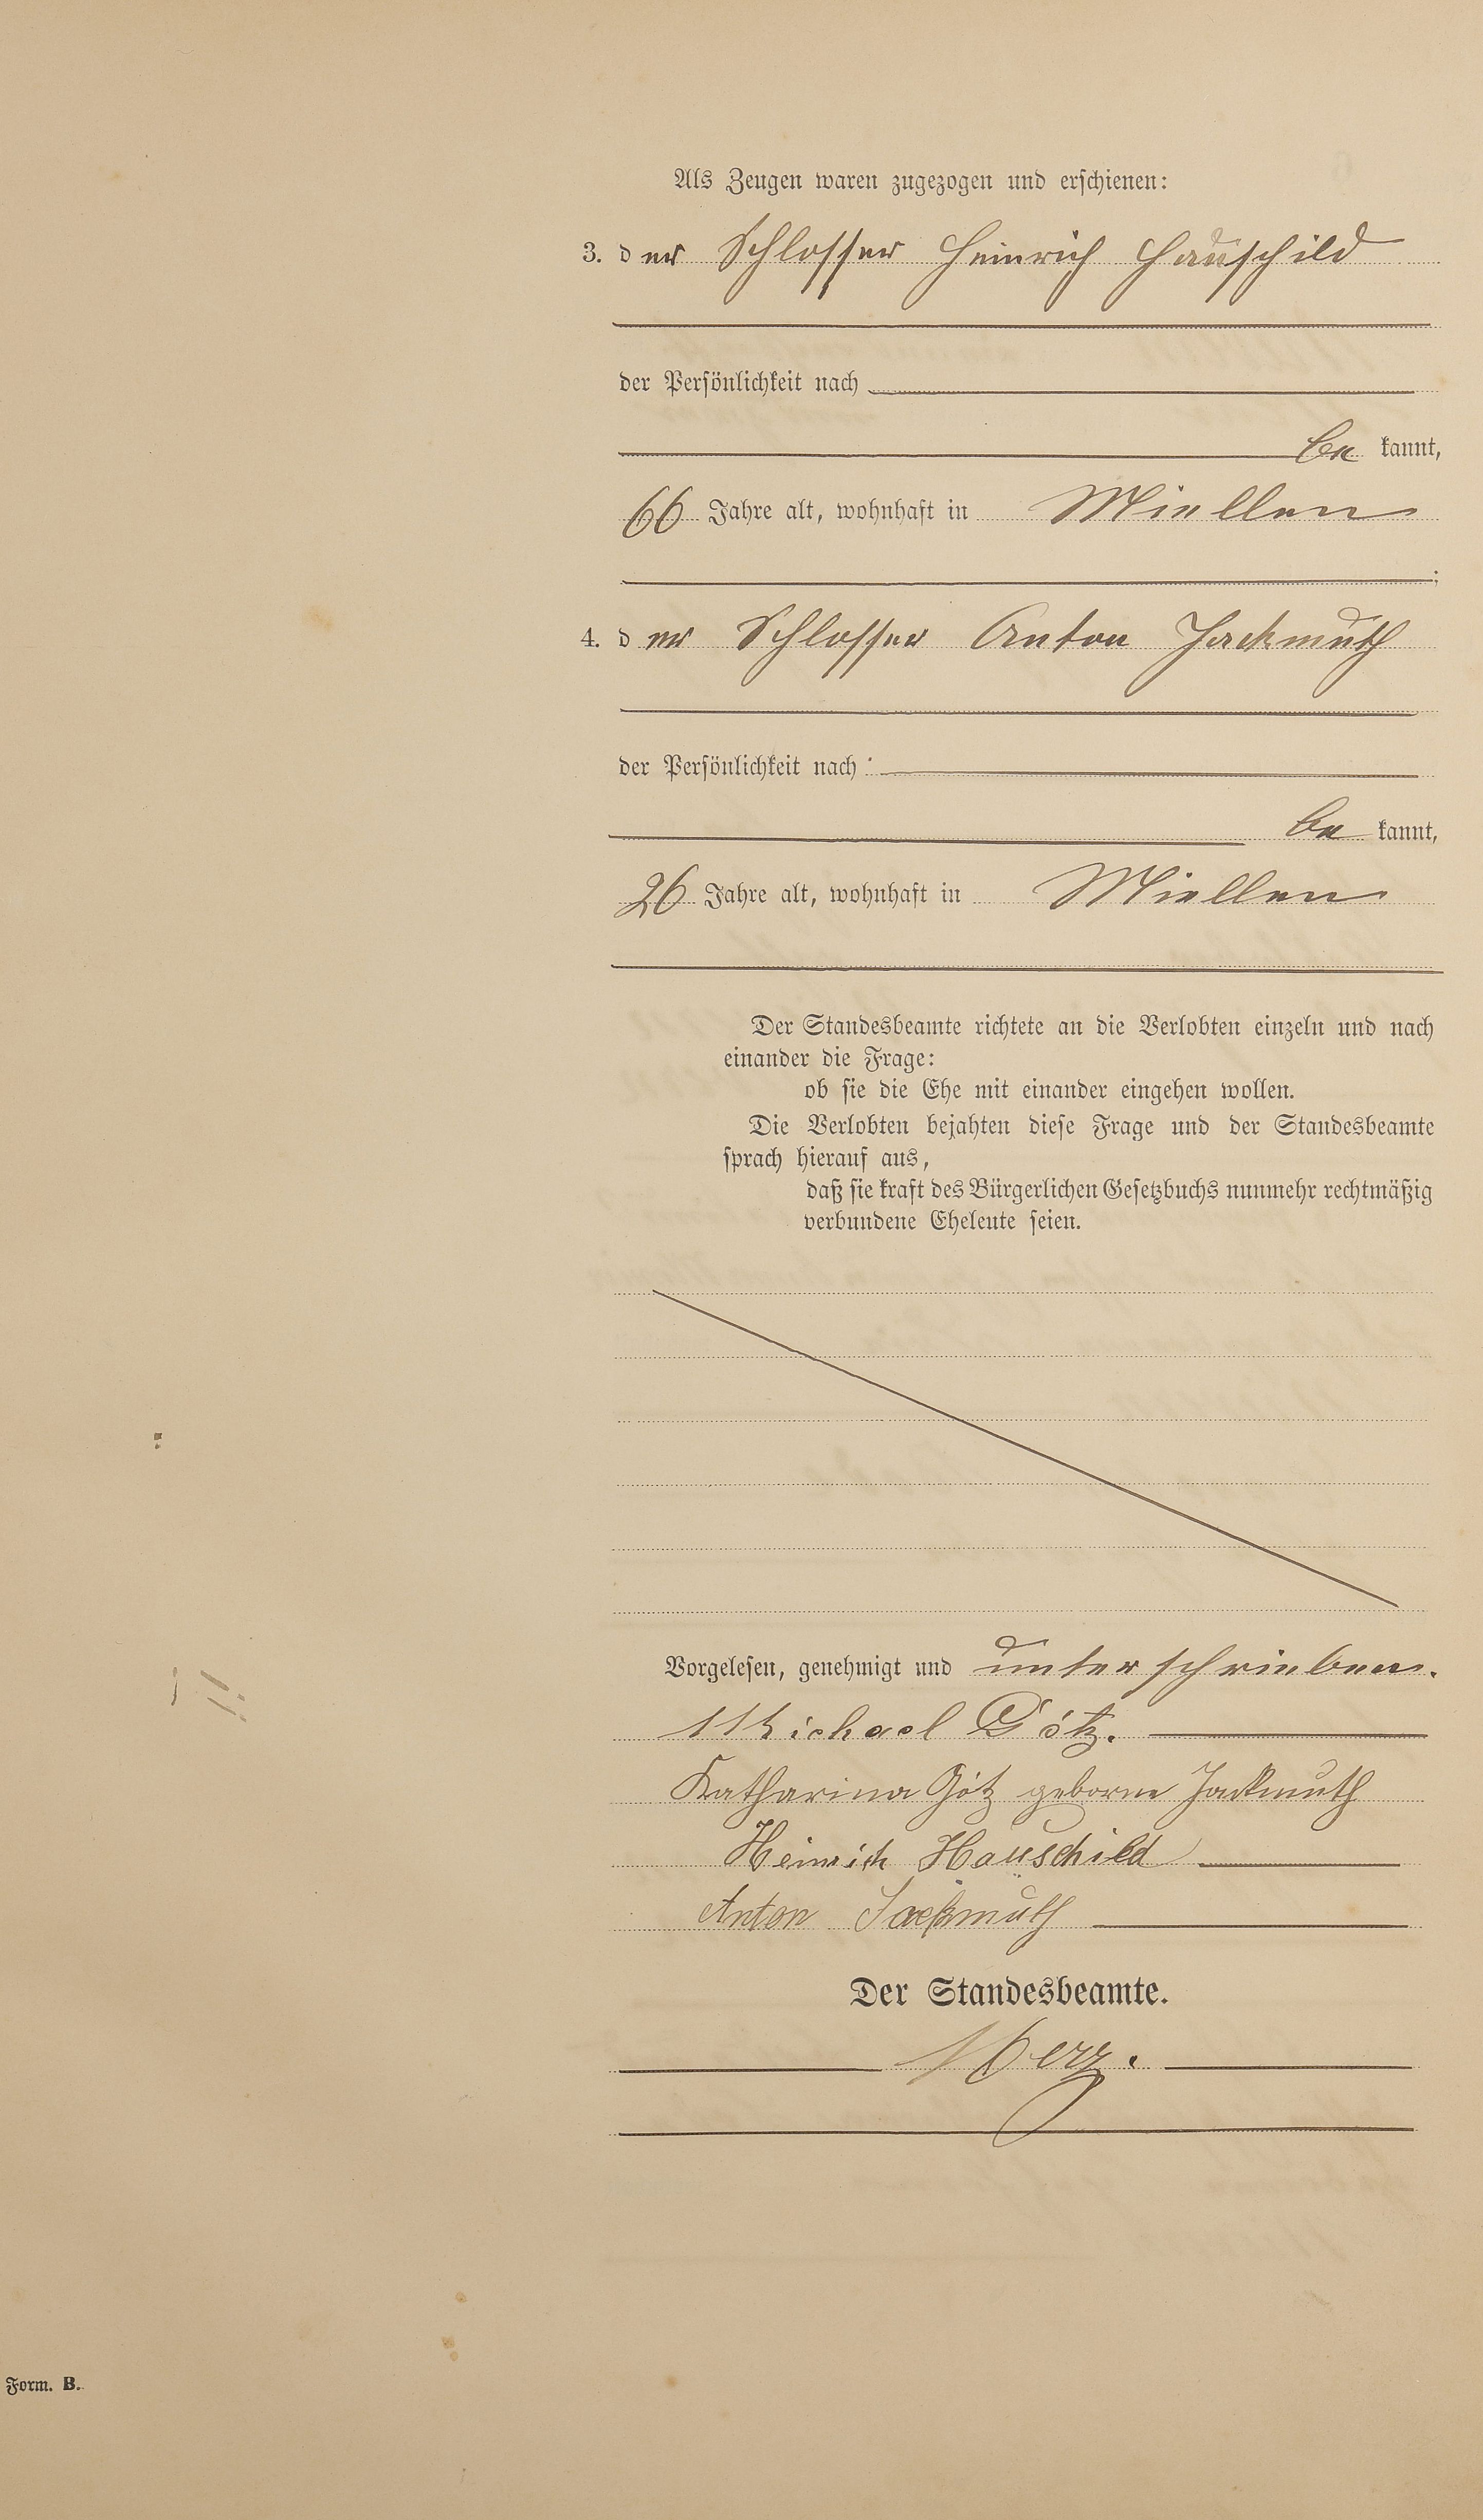 Als Zeugen waren zugezogen und erschienen:
3. der Schlosser Heinrich Hauschild
der Persönlichkeit nach
be kannt,
66 Jahre alt, wohnhaft in Miellen
;
4. der Schlosser Anton Jackmuth
der Persönlichkeit nach
be kannt,
26 Jahre alt, wohnhaft in Miellen
Der Standesbeamte richtete an die Verlobten einzeln und nach
einander die Frage:
ob sie die Ehe mit einander eingehen wollen.
Die Verlobten bejahten diese Frage und der Standesbeamte
sprach hierauf aus,
daß sie kraft des Bürgerlichen Gesetzbuchs nunmehr rechtmäßig
verbundene Eheleute seien.
Vorgelesen, genehmigt und unterschrieben.
Michael Götz.
Katharina Götz geborne Jackmuth
Heinrich Hauschild
Anton Jackmuth
Der Standesbeamte.
Merz.
Form. B.